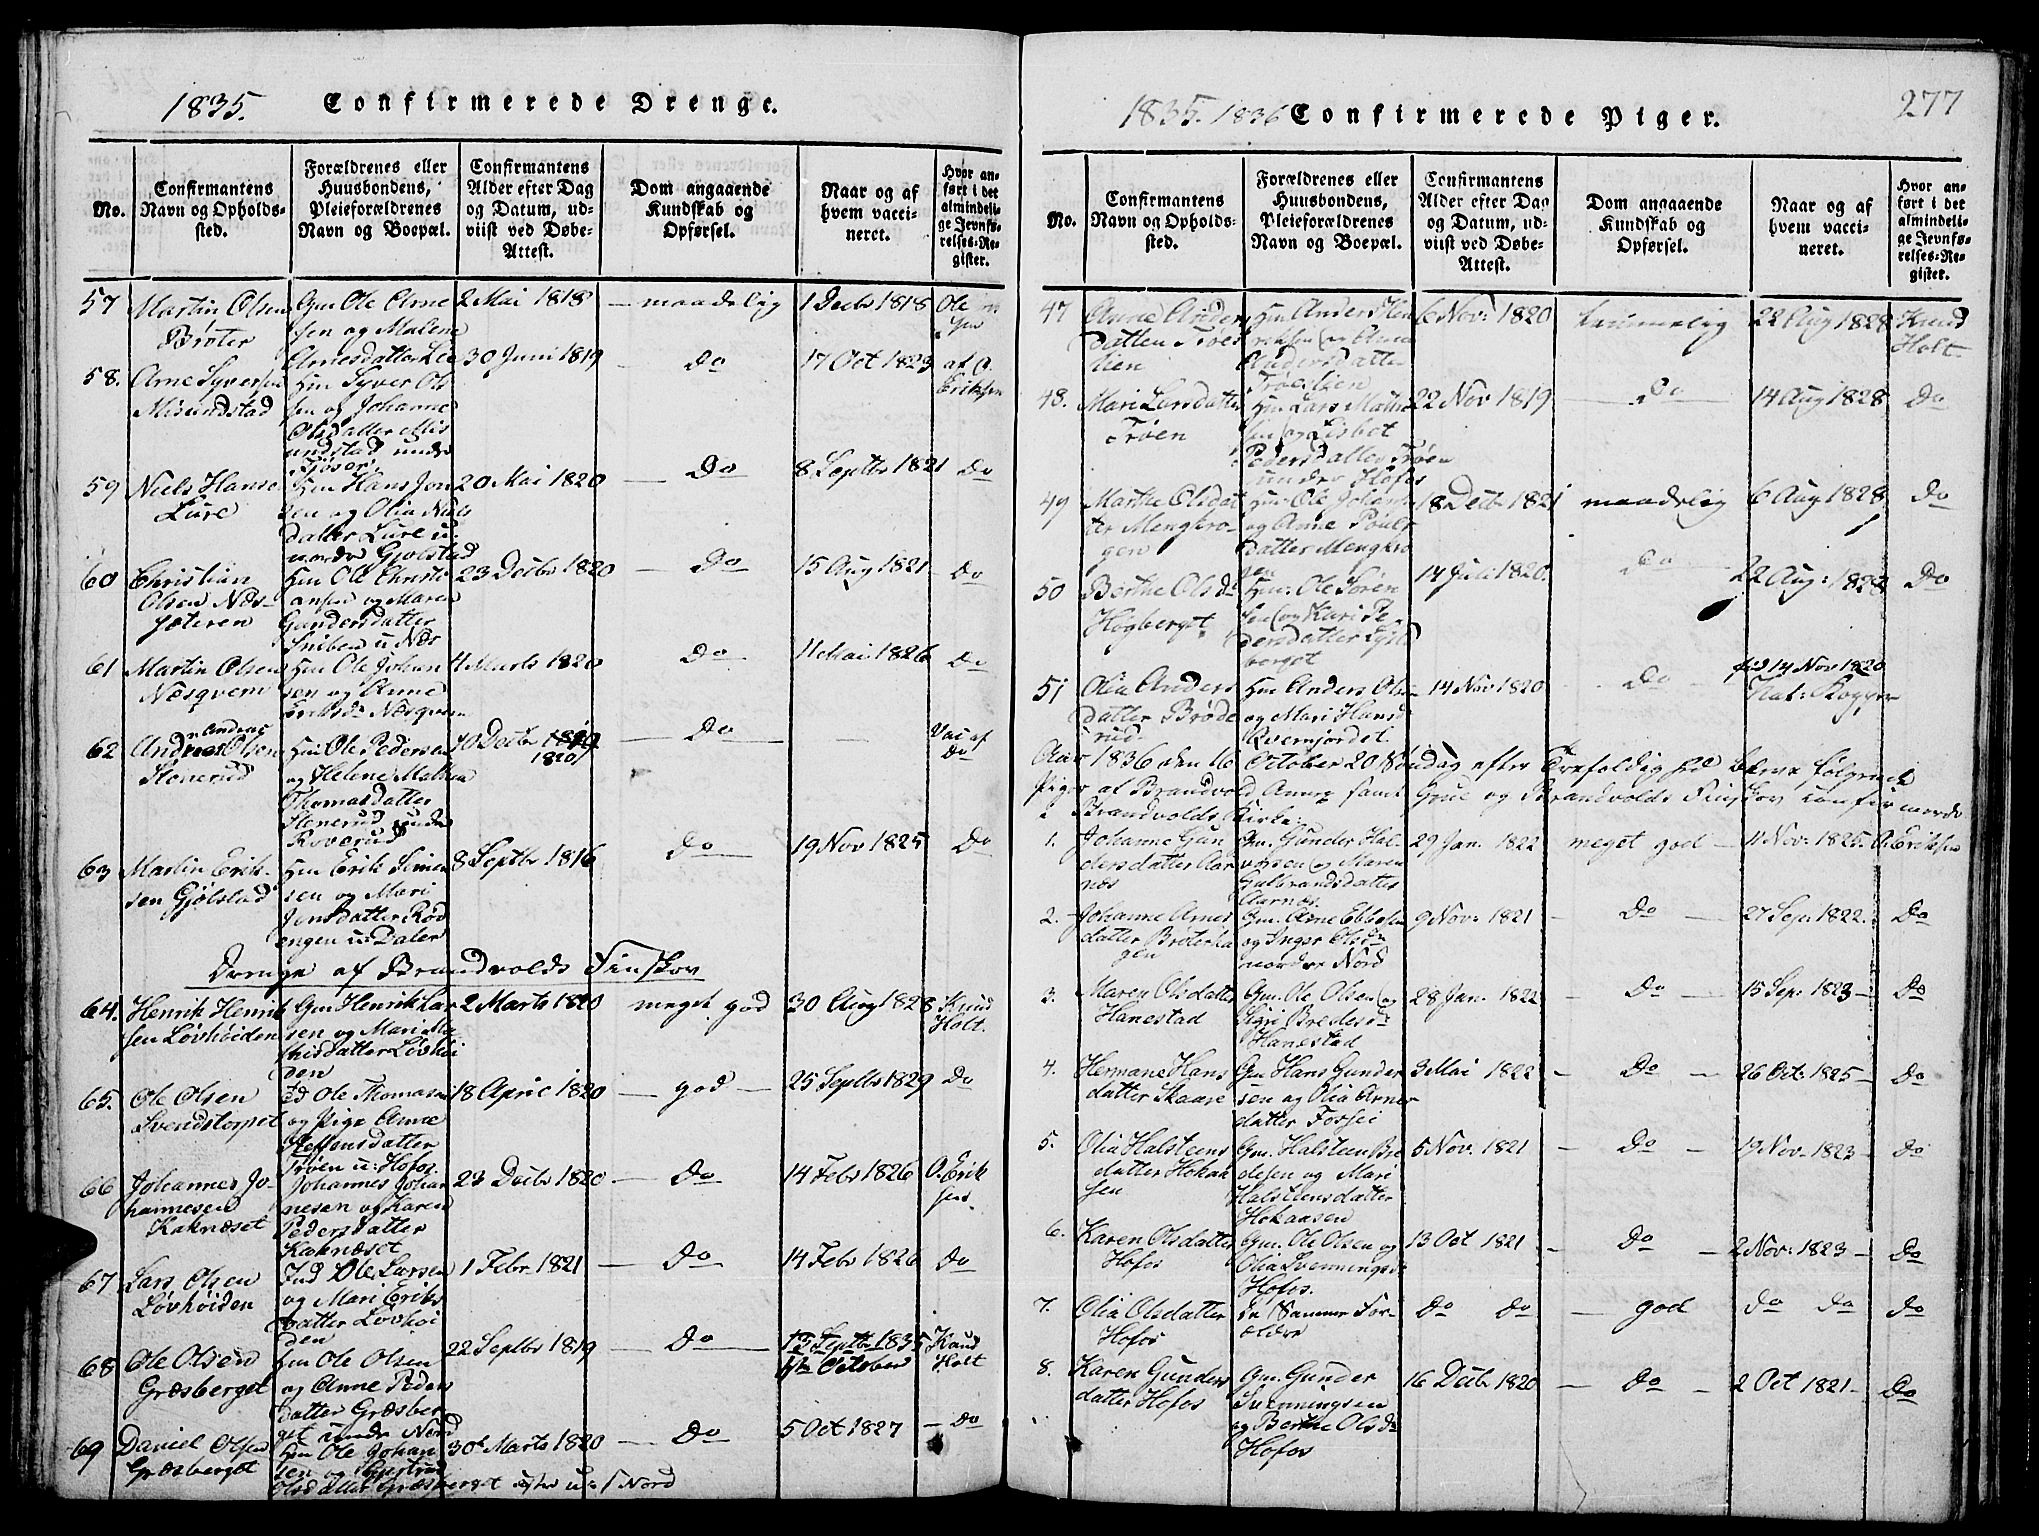 1835. Confirmerede Drenge.
No.
Confirmantens
Navn og Opholds-
sted.
Forældrenes eller
Huusbondens,
Pleieforældrenes
Navn og Boepæl.
Confirmantens
Alder efter Dag
og Datum, ud-
viist ved Døbe-
Attest.
Dom angaaende
Kundskab og
Opførsel.
Naar og af
hvem vacci-
neret.
Hvor an-
ført i det
almindeli-
ge Jevnfø-
relses-Re-
gister.
57 Martin Olsen
Brøter
Gm Ole Arne
sen og Malene
Arnesdatter Lie
2 Mai 1818
maadelig
1 Decbr 1818
Ole
58. Arne Syversen
Misundstad
Hm Syver Ol
sen og Johanne
Olsdatter Mis
undstad under
30 Juni 1819
Do
17 Oct 1823
af O.
Eriksen
59 Niels Hanse
Lure
Hm Hans Jon
sen og Olia Niels
datter Lure u.
under Gjølstad
20 Mai 1820
Do
8 Septbr 1821
Do
60 Christian
Olsen Næs-
sæteren
Hm Ole Christi
ansen og Maren
Gundersdatter
Sniben u Næs
23 Decbr 1820
Do
15 Aug 1821
Do
61 Martin Olsen
Næsqvern
Hm Ole Johan
sen og Anne
Eriksdr Næsqvern
4 Marts 1820
Do
11 Mai 1826
Do
62 Andreas
Olsen
Stenerud
Hm Ole Pedersen
og Helene Mathea
Thomasdatter
Stenerud under
Roverud
10 Decbr 1819
1820
Do
Vac af
Do
63 Martin Erik-
sen Gjølstad
Hm Erik Simen
sen og Mari
Jensdatter Rød
engen u: Daler
8 Septbr 1816
Do
19 Nov 1825
Do
Drenge af Brandvolds Finskov
64. Henrik Henrik
sen Løvhøiden
Gm Henrik Lar
sen og Mari Ma
thisdatter Løvhøi
den
2 Marts 1820
meget god
30 Aug 1828
Knud
Holt.
65. Ole Olsen
Svendstorpet
Ole Thomasen
og Pige Anne
Steffensdatter
Trøen u: Hofos.
18 April 1820
god
25 Septbr 1829
Do
66 Johannes Jo-
hannesen
Kaknæset
Johannes Johan
nesen og Karen
Pedersdatter
Kaknæset
23 Decbr 1820
Do
14 Febr 1826
O. Erik
sen.
67 Lars Olsen
Løvhøiden
Ind Ole Larsen
og Mari Eriks
datter Løvhøi
den
1 Febr 1821
Do
14 Febr 1826
Do
68 Ole Olsen
Græsberget
Hm Ole Olsen
og Anne Peders
datter Græsber
get under Nord
22 Septbr 1819
Do
13 Septbr 1835
October
Knud
Holt
69 Daniel Olsen
Græsberget
Hm Ole Johan
sen og
Olsdatter Græsberget u: Nord
30 Marts 1820
Do
5 Oct 1827
Do
1835. 1836 Confirmerede Piger.
277
No.
Confirmantens
Navn og Opholds-
sted.
Forældrenes eller
Huusbondens,
Pleieforældrenes
Navn og Boepæl.
Confirmantens
Alder efter Dag
og Datum, ud-
viist ved Døbe-
Attest.
Dom angaaende
Kundskab og
Opførsel.
Naar og af
hvem vacci-
neret.
Hvor an-
ført i det
almindeli-
ge Jevnfø-
relses-Re-
gister.
47 Anne Anders
datter Troes
lien
Hm Anders Hen
riksen og Anne
Andersdatter
Troeslien
6 Nov: 1820
temmelig
22 Aug 1828
Knud
Holt
48. Mari Larsdatter
Trøen
Hm Lars Math
sen og Lisbet
Pedersdatter Trøen
under Hofos
22 Nov 1819
Do
14 Aug 1828
Do
49 Marthe Olsdat
ter Mengkro-
gen
Hm Ole Johans
og Anne Pouls
datter Mengkro
gen
18 Decbr 1821
maadelig
6 Aug 1828
Do
50 Berthe Olsdr
Høgberget
Hm: Ole Søren
sen og Kari Pe-
dersdatter
berget
14 Juli 1820
Do
22 Aug: 1828
Do
51 Olia Anders
datter Brøde
rud
Hm Anders Olsen
og Mari Hansd
Kvernjordet
14 Nov 1820
Do
14 Nov 1820
Nat: Kopper
Aar 1836 den 16 October 20 Søndag efter Trefoldighed bleve følgende
Piger af Brandvold Annex samt Grue og Brandvolds Finskov confirmerede
i Brandvolds Kirke:
1. Johanne Gun
dersdatter Aar
næs
Gm. Gunder Hal
vorsen og Maren
Gulbrandsdatter
Aarnæs.
29 Jan. 1822
meget god
11 Nov: 1825
O. Eriksen
2. Johanne Arnes
datter Brøterha
gen
Gm. Arne Ebbesen
og Inger Olsdr
nordre Nord
9 Nov: 1821
Do
27 Sep: 1822.
Do
3. Maren Olsdatter
Hanestad
Gm. Ole Olsen og
Sigri Bredesdr
Hanestad
28 Jan. 1822
Do
15 Sep: 1823
Do
4. Hermane Hans
datter Skaare
Gm Hans Gunder
sen og Olia Arnes
datter Forsei
3 Mai 1822
Do
26 Oct: 1825
Do
5. Olia Halsteens
datter Hokaa
sen
Gm. Halsteen Bre
desen og Mari
Halsteensdatter
Hokaasen
5 Nov: 1821
Do
19 Nov: 1823
Do
6. Karen Olsdatter
Hofos
Gm. Ole Olsen og
Olia Svenningsdr
Hofos.
13 Oct 1821
Do
2 Nov: 1823
Do
7. Olia Olsdatter
Hofos
De Samme For-
ældre
Do Do
god
Do Do
Do
8. Karen Gunders
datter Hofos
Gm. Gunder
Svenningsen
og Berthe Olsdr
Hofos
16 Decbr 1820
Do
2 Oct 1821
Do